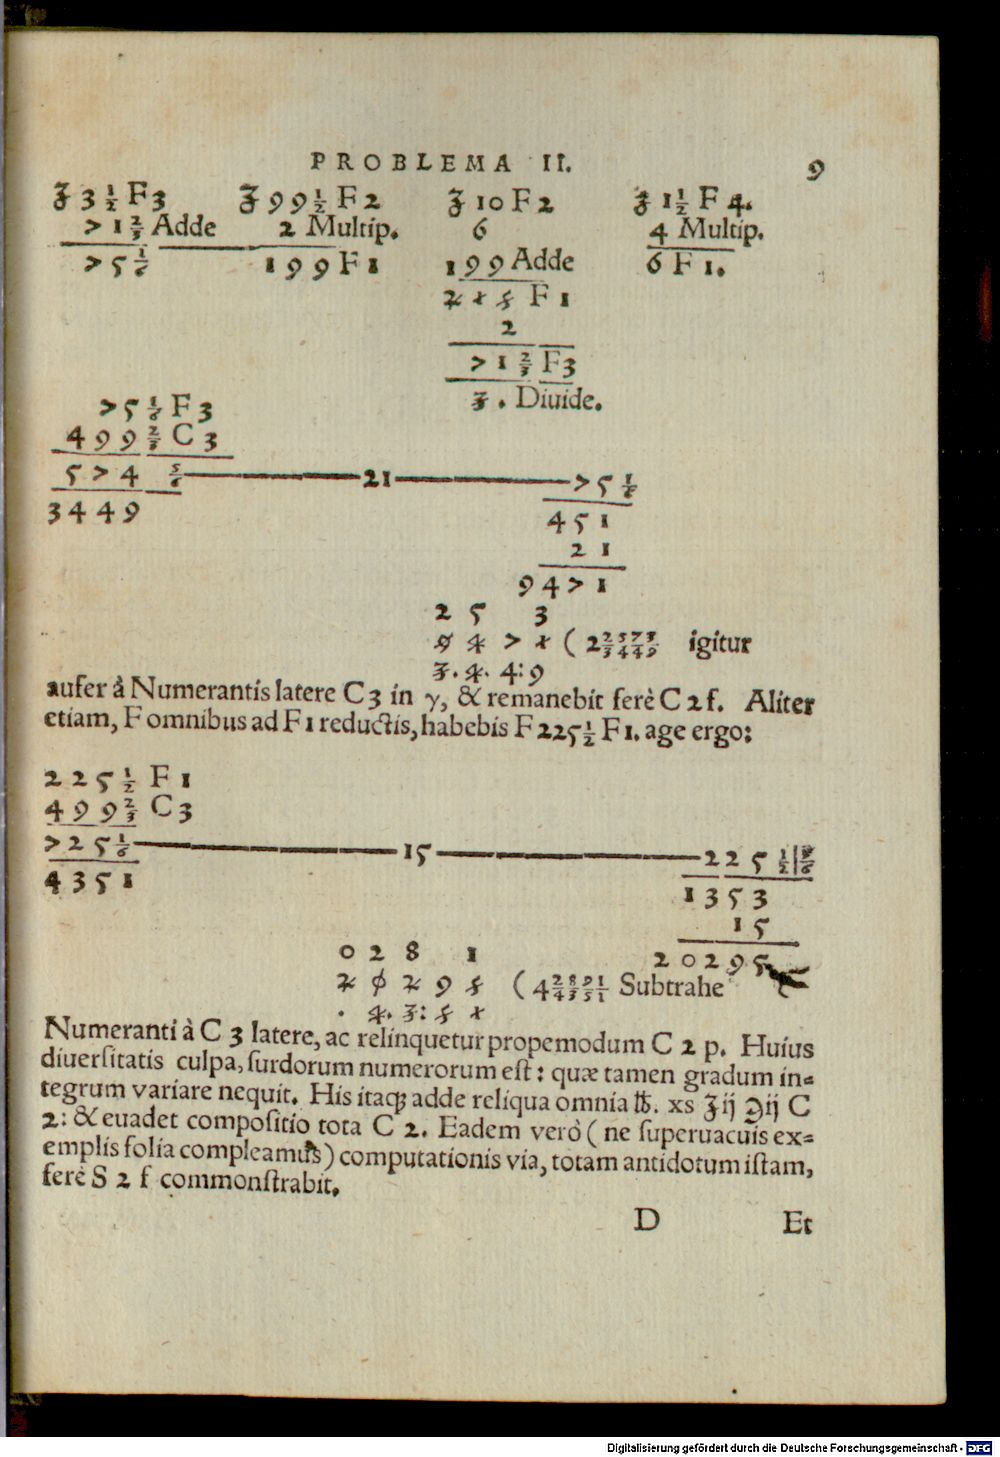 PROBLEMA II. 9
ʒ 3 1/2 F3   ʒ 99 1/2 F 2   ʒ 10 F 2   ʒ 1 1/2 F 4.
71 2/3 Adde   2 Multip.   6   4 Multip.
75 1/6   199 F 1   199 Adde   6 F 1.
215 F 1
2
71 2/3 F3
3. Diuide.
75 1/6 F 3
499 2/3 C 3
574 5/6 — 21 — 75 1/6
3449   451
21
9471
2 5 3
9 4 7 1 ( 2 2573/3449 igitur
3. 4. 4:9
aufer à Numerantis latere C 3 in γ, & remanebit ferè C 2 f. Aliter
etiam, F omnibus ad F 1 reductis, habebis F 225 1/2 F 1. age ergo:
225 1/2 F 1
499 2/3 C 3
725 1/6 — 15 — 225 1/2 |
4351   1353
15
0 2 8 1   20295
2 0 2 9 5 ( 4 2891/4351 Subtrahe
. 4. 3: 5 1
Numeranti à C 3 latere, ac relinquetur propemodum C 2 p. Huius
diuersitatis culpa, surdorum numerorum est: quæ tamen gradum in=
tegrum variare nequit. His itaq; adde reliqua omnia ℔. xs ʒij ℈ij C
2: & euadet compositio tota C 2. Eadem verò ( ne superuacuis ex=
emplis folia compleamus) computationis via, totam antidotum istam,
ferè S 2 f commonstrabit.
D Et
Digitalisierung gefördert durch die Deutsche Forschungsgemeinschaft - DFG